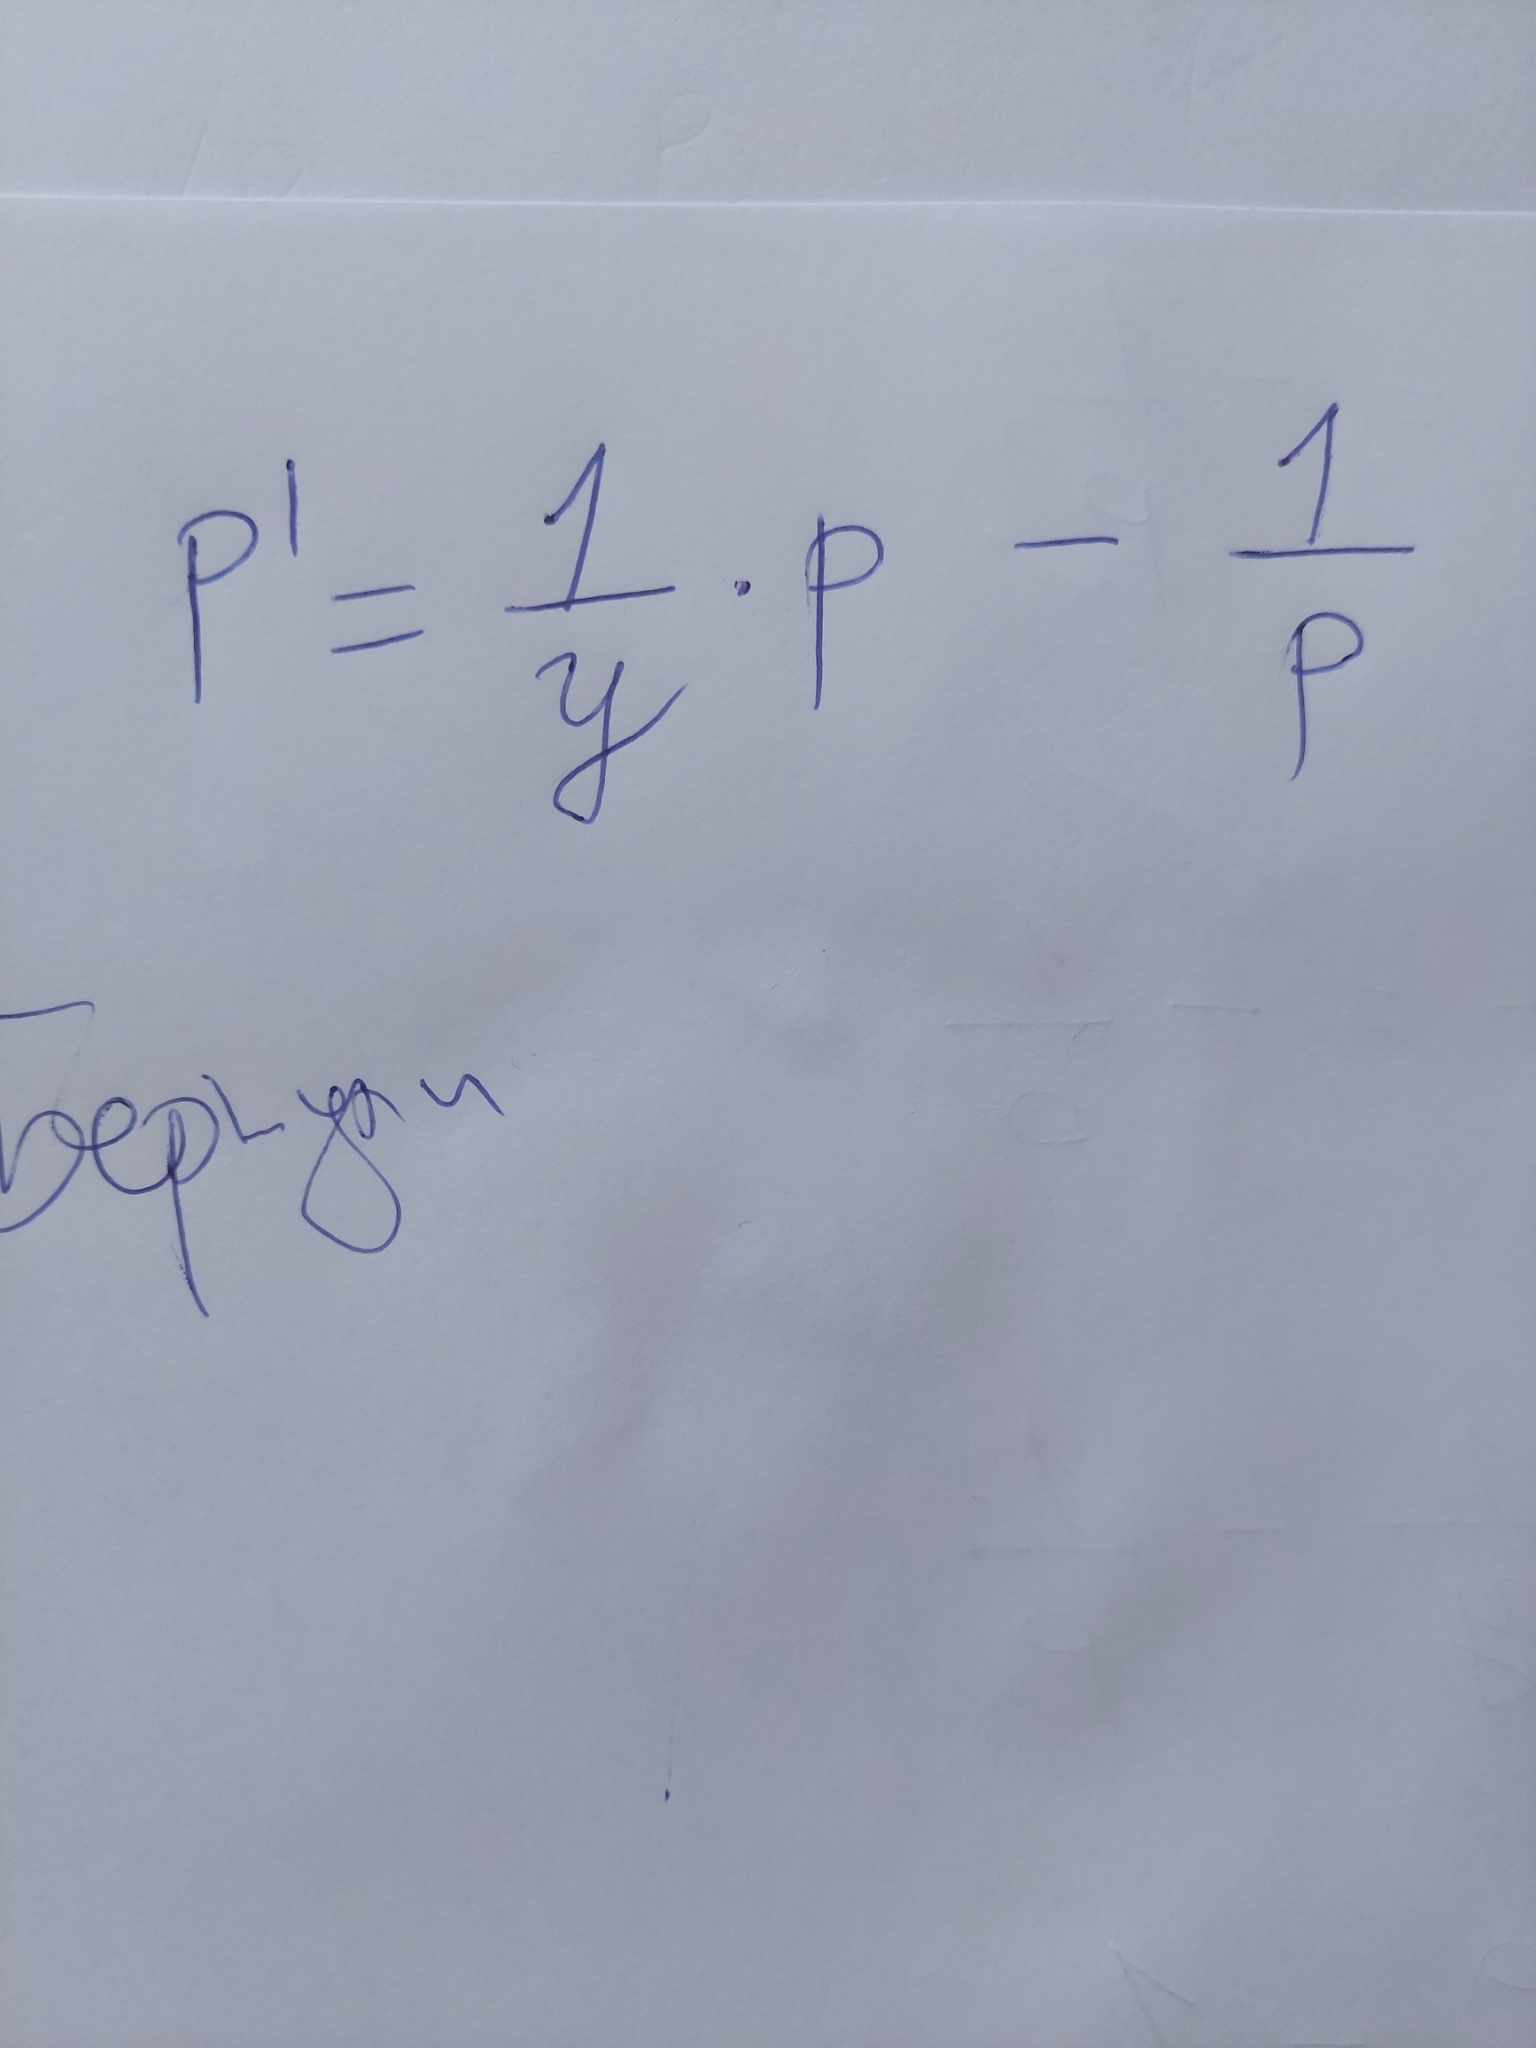 p' = 1/y · p − 1/p
Бернули